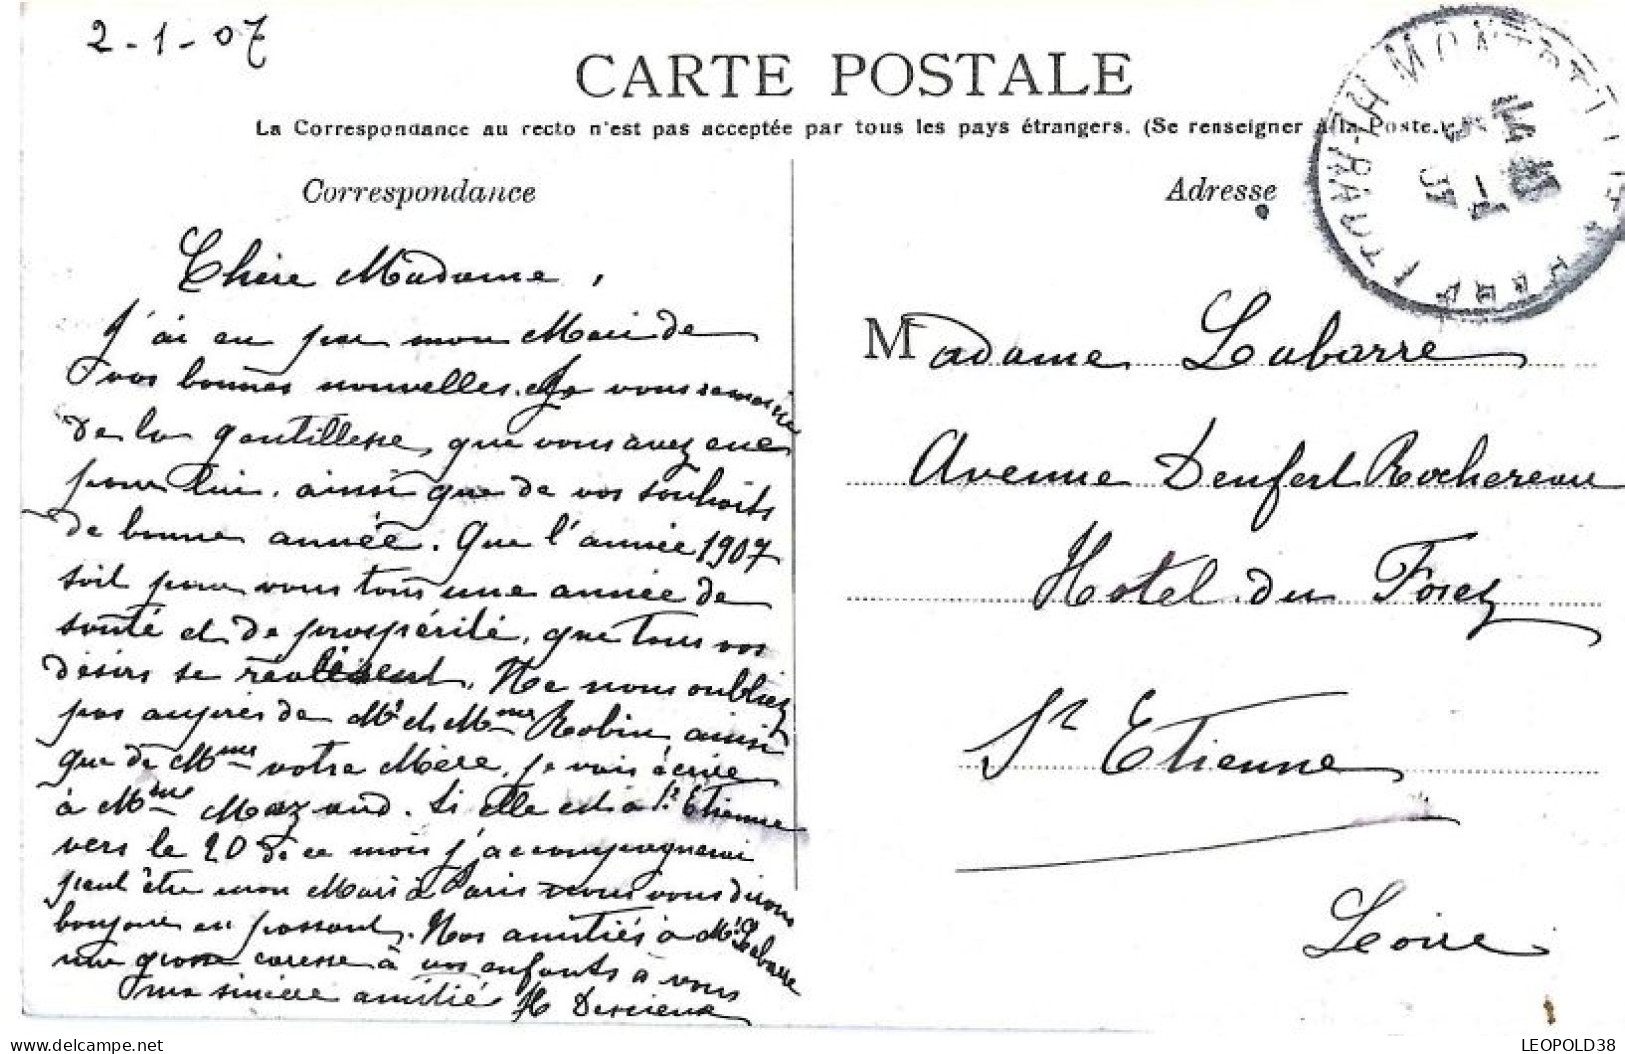 2-1-07
CARTE POSTALE
La Correspondance au recto n'est pas acceptée par tous les pays étrangers. (Se renseigner à la Poste.)
Correspondance
Adresse
Chère Madame,
J'ai eu par mon Mari de
vos bonnes nouvelles. Je vous remercie
de la gentillesse que vous avez eue
pour lui, ainsi que de vos souhaits
de bonne année. Que l'année 1907
soit pour vous tous une année de
santé et de prospérité, que tous vos
désirs se réalisent. Ne nous oubliez
pas auprès de Mr et Mme Robin, ainsi
que de Mme votre Mère, je vais écrire
à Mme Mazaud. Si elle est à St Etienne
vers le 20 de ce mois j'accompagnerai
peut être mon Mari à Paris nous vous dirons
bonjour en passant. Nos amitiés à Mr Labarre
une grosse caresse à vos enfants à vous
ma sincère amitié H Descieux
Madame Labarre
Avenue Denfert Rochereau
Hotel du Forez
St Etienne
Loire
delcampe.net
LEOPOLD38